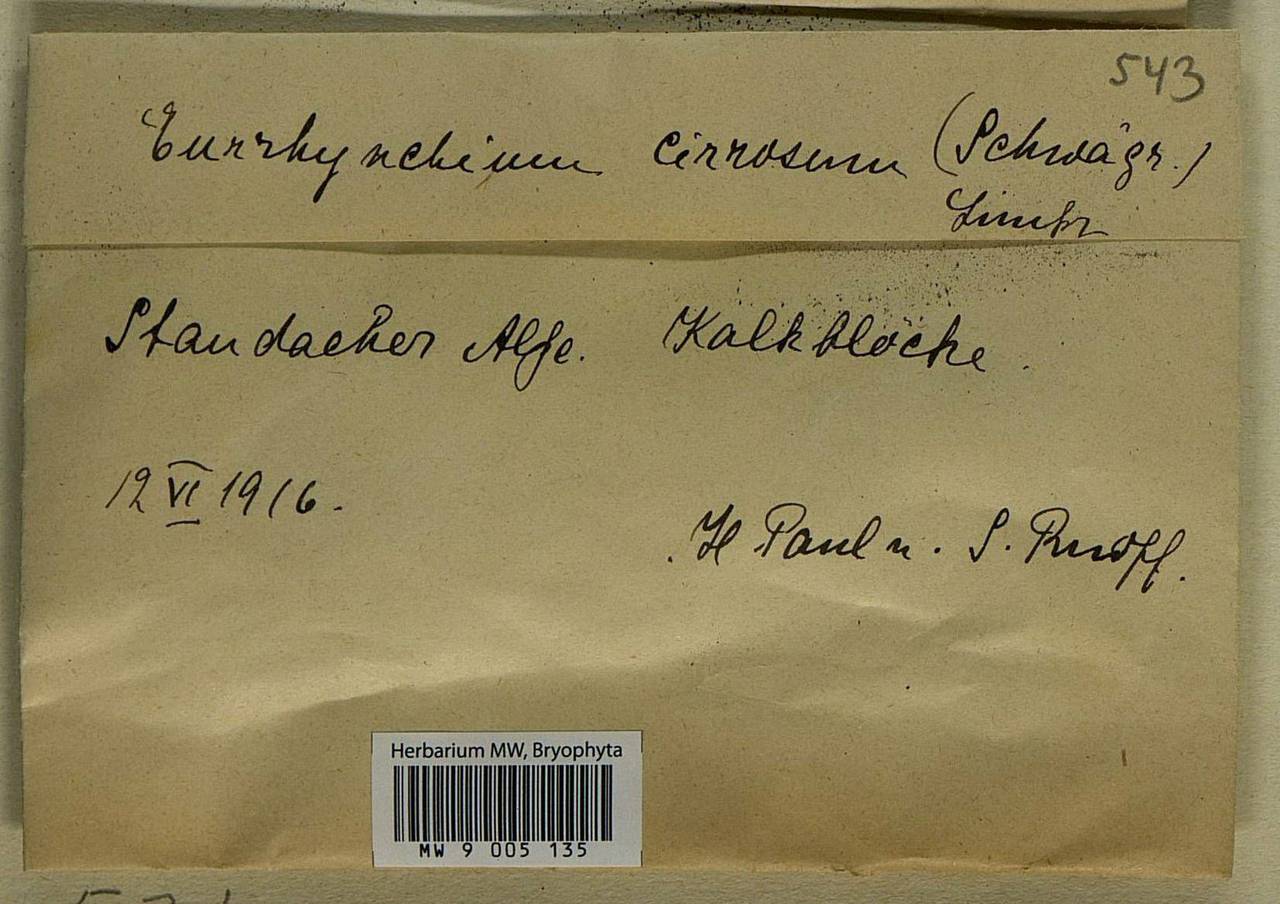 543
Eurrhynchium cirrosum (Schwägr.)
Limpr
Staudacher Alpe. Kalkblöcke.
12 VI 1916.
H Paul u. S. Ruoff.
Herbarium MW, Bryophyta
MW 9 005 135